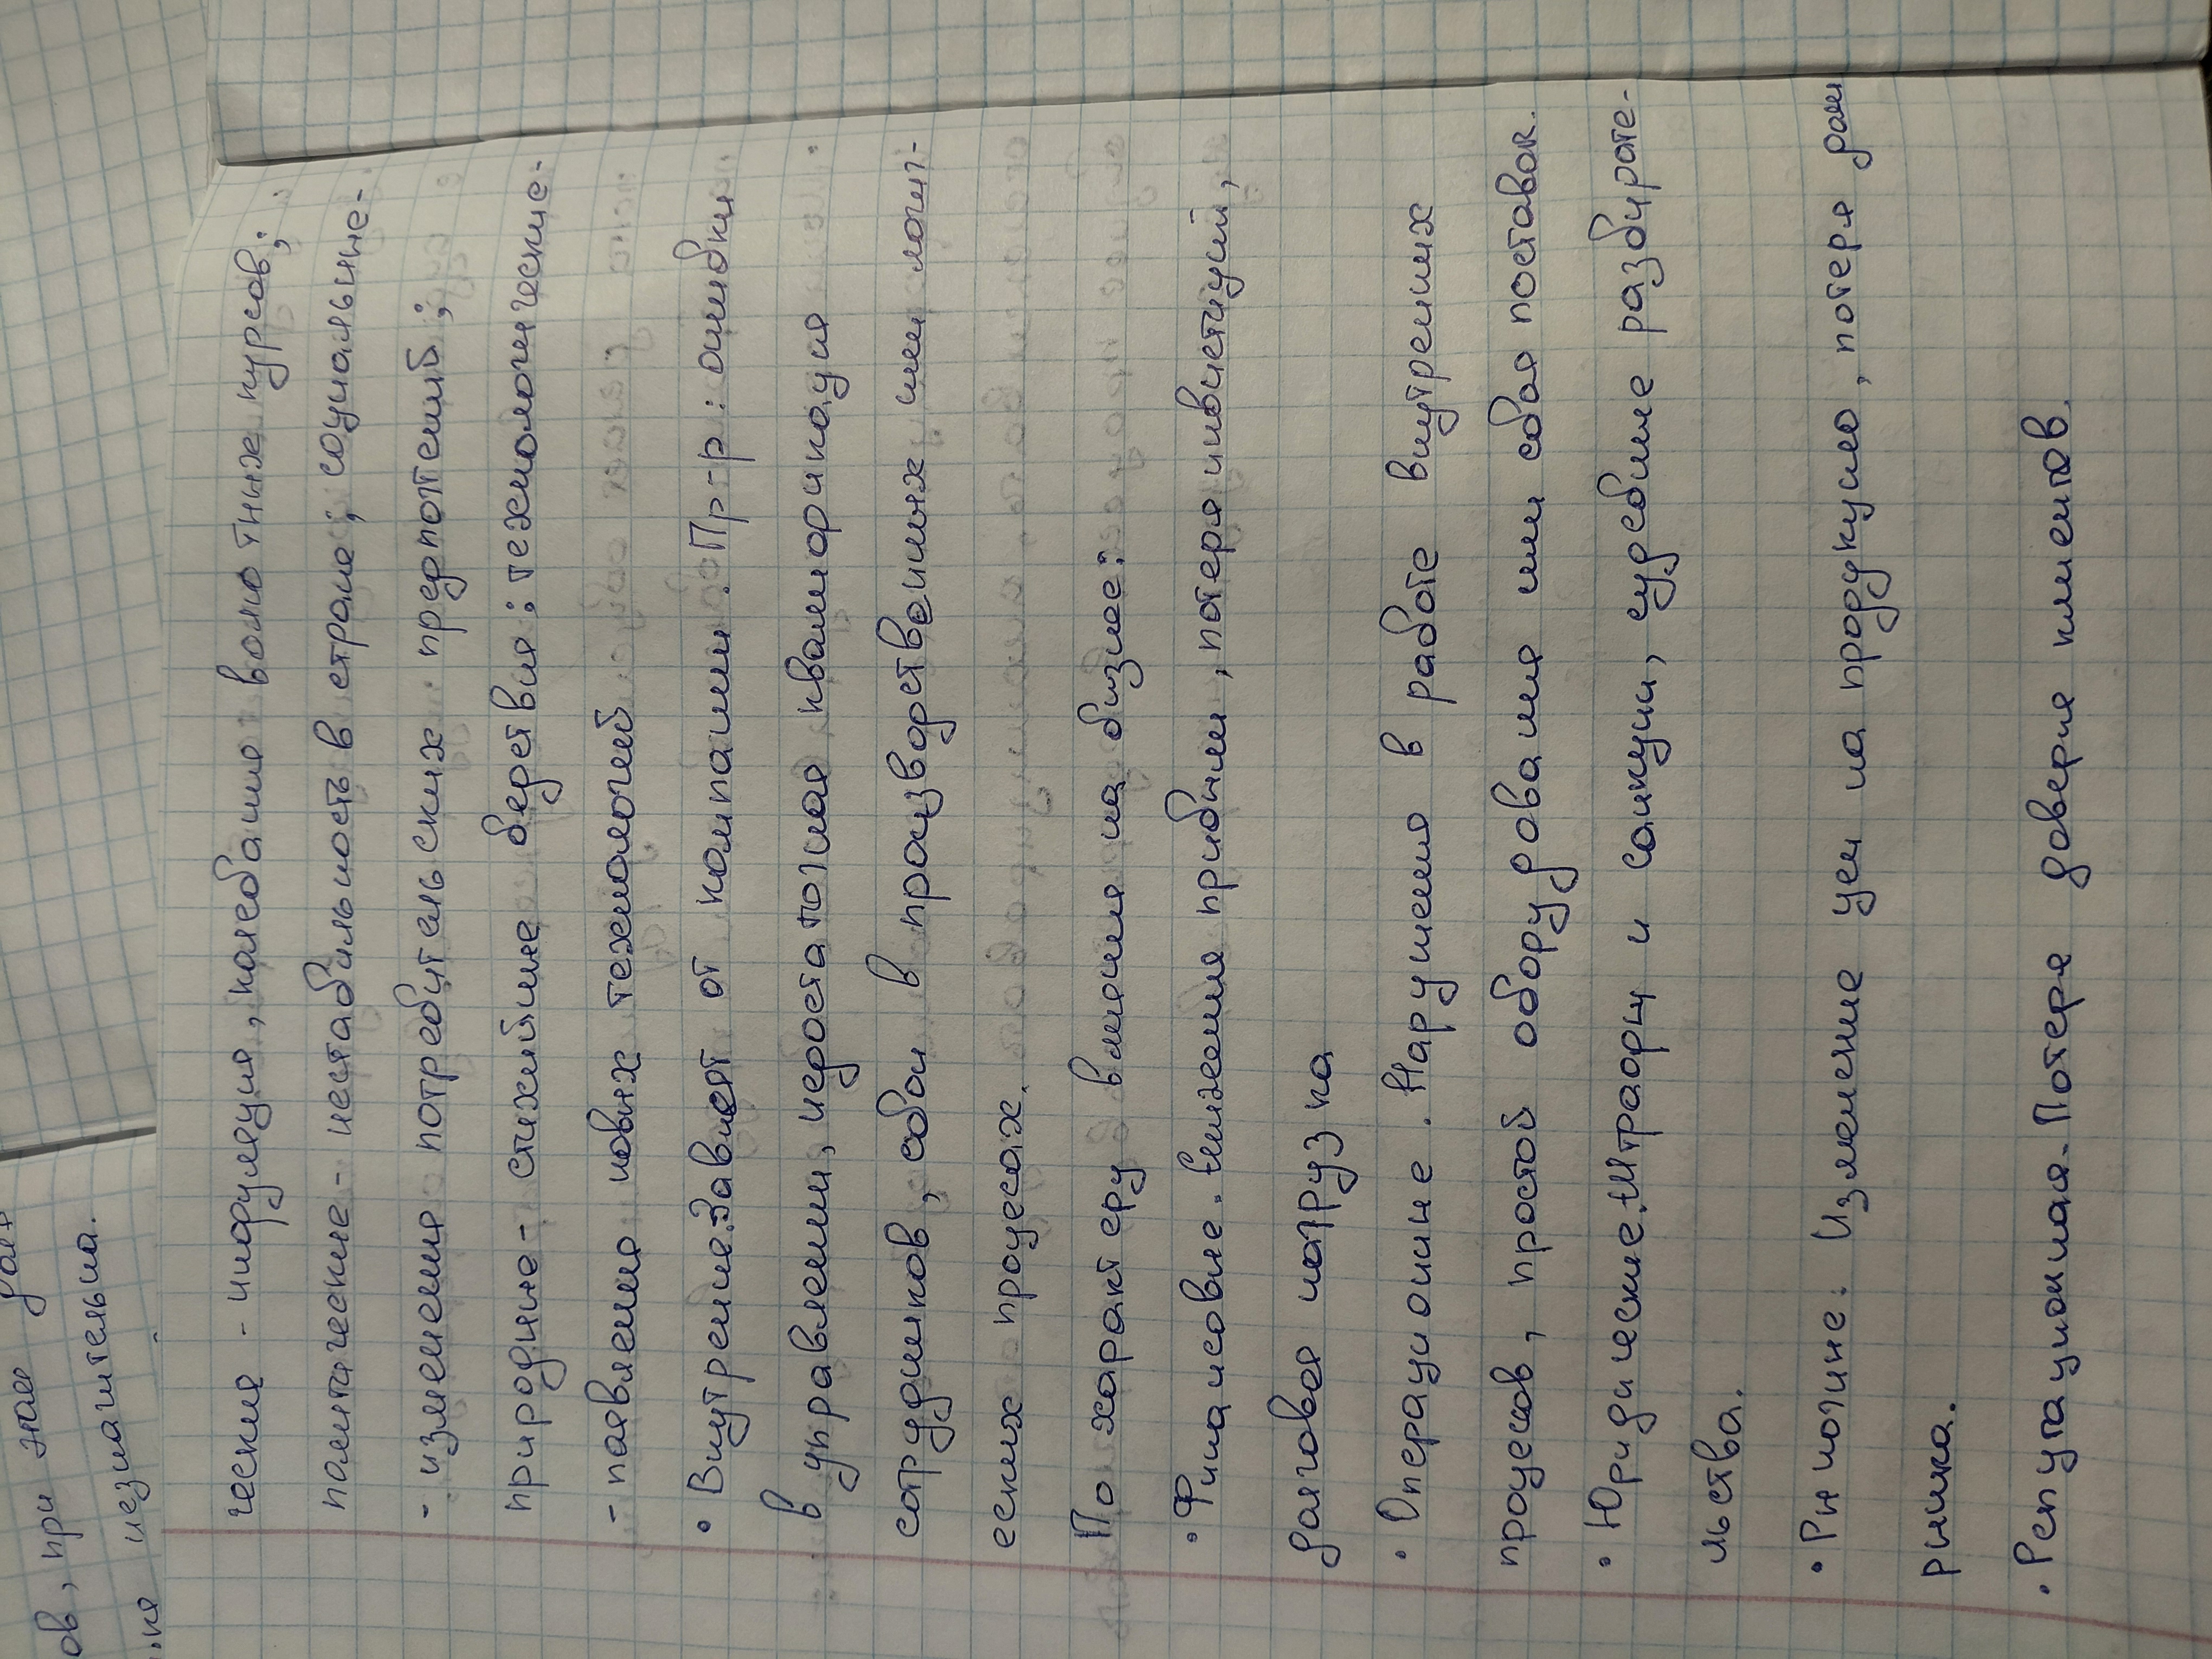 ов, при этом
незначительна.
ческие - инфуляция, колебание волютных курсов;
политические - нестабильность в стране; социальные -
- изменения потребительских предпотений;
природные - стихийные бедствия; технологические -
- появление новых технологий
• Внутрение. Зависят от компании. Пр-р: ошибки
в управлении, недостаточная квалификация
сотрудников, сбои в производственных или логи-
еских процесах.
По характеру влияния на бизнес:
• Финансовые. Снижение прибыли, потеря инвистиций,
долговая нагрузка
• Операционные. Нарушения в работе внутрених
процесов, простой оборудования или сбоя поставок.
• Юридические. Штрафы и санкции, судебные разбирате-
льства.
• Рыночные. Изменение цен на продукцию, потеря доли
рынка.
• Репутационная. Потеря доверия клиентов.